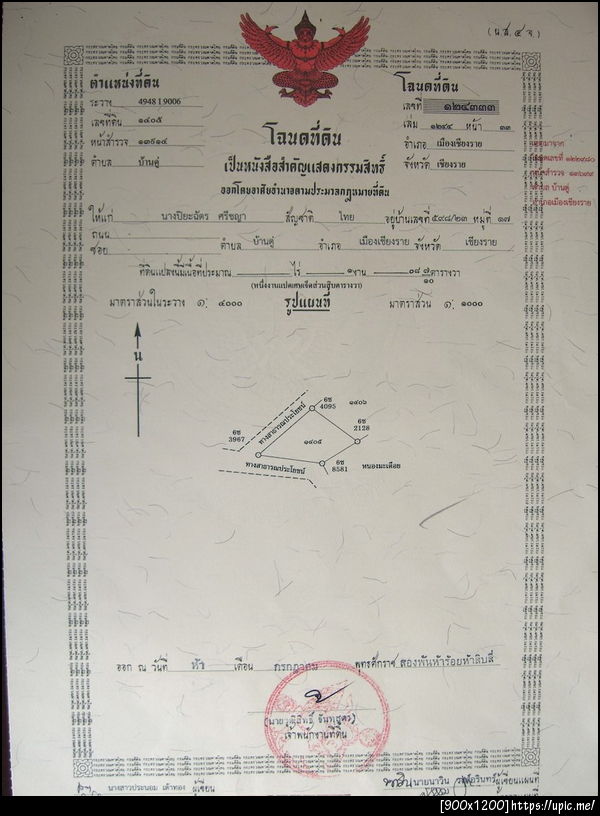 (น.ส. ๔ จ.)
ตำแหน่งที่ดิน
ระวาง 4948 I 9006
เลขที่ดิน ๑๔๐๕
หน้าสำรวจ ๑๓๙๑๔
ตำบล บ้านดู่
โฉนดที่ดิน
เลขที่ ๑๒๔๓๓๓
เล่ม ๑๒๔๔ หน้า ๓๓
อำเภอ เมืองเชียงราย
จังหวัด เชียงราย
โฉนดที่ดิน
เป็นหนังสือสำคัญแสดงกรรมสิทธิ์
ออกโดยอาศัยอำนาจตามประมวลกฎหมายที่ดิน
ตำบล บ้านดู่
อำเภอเมืองเชียงราย
ให้แก่ นางปิยะฉัตร ศรีชญา สัญชาติ ไทย อยู่บ้านเลขที่ ๕๙๘/๒๓ หมู่ที่ ๑๗
ถนน
ซอย ตำบล บ้านดู่ อำเภอ เมืองเชียงราย จังหวัด เชียงราย
ที่ดินแปลงนี้มีเนื้อที่ประมาณ ไร่ ๑ งาน ๐๘ ๗/๑๐ ตารางวา
(หนึ่งงานแปดเศษเจ็ดส่วนสิบตารางวา)
มาตราส่วนในระวาง ๑: ๔๐๐๐ รูปแผนที่ มาตราส่วน ๑: ๑๐๐๐
น
6ซ 4095
๑๔๐๖
6ซ 2128
6ซ 3967
ทางสาธารณประโยชน์
๑๔๐๕
ทางสาธารณประโยชน์
6ซ 8581
หนองมะเดือย
ออก ณ วันที่ ห้า เดือน กรกฎาคม พุทธศักราช สองพันห้าร้อยห้าสิบสี่
เจ้าพนักงานที่ดิน
ผู้เขียน
ผู้เขียนแผนที่
[900x1200] https://upic.me/